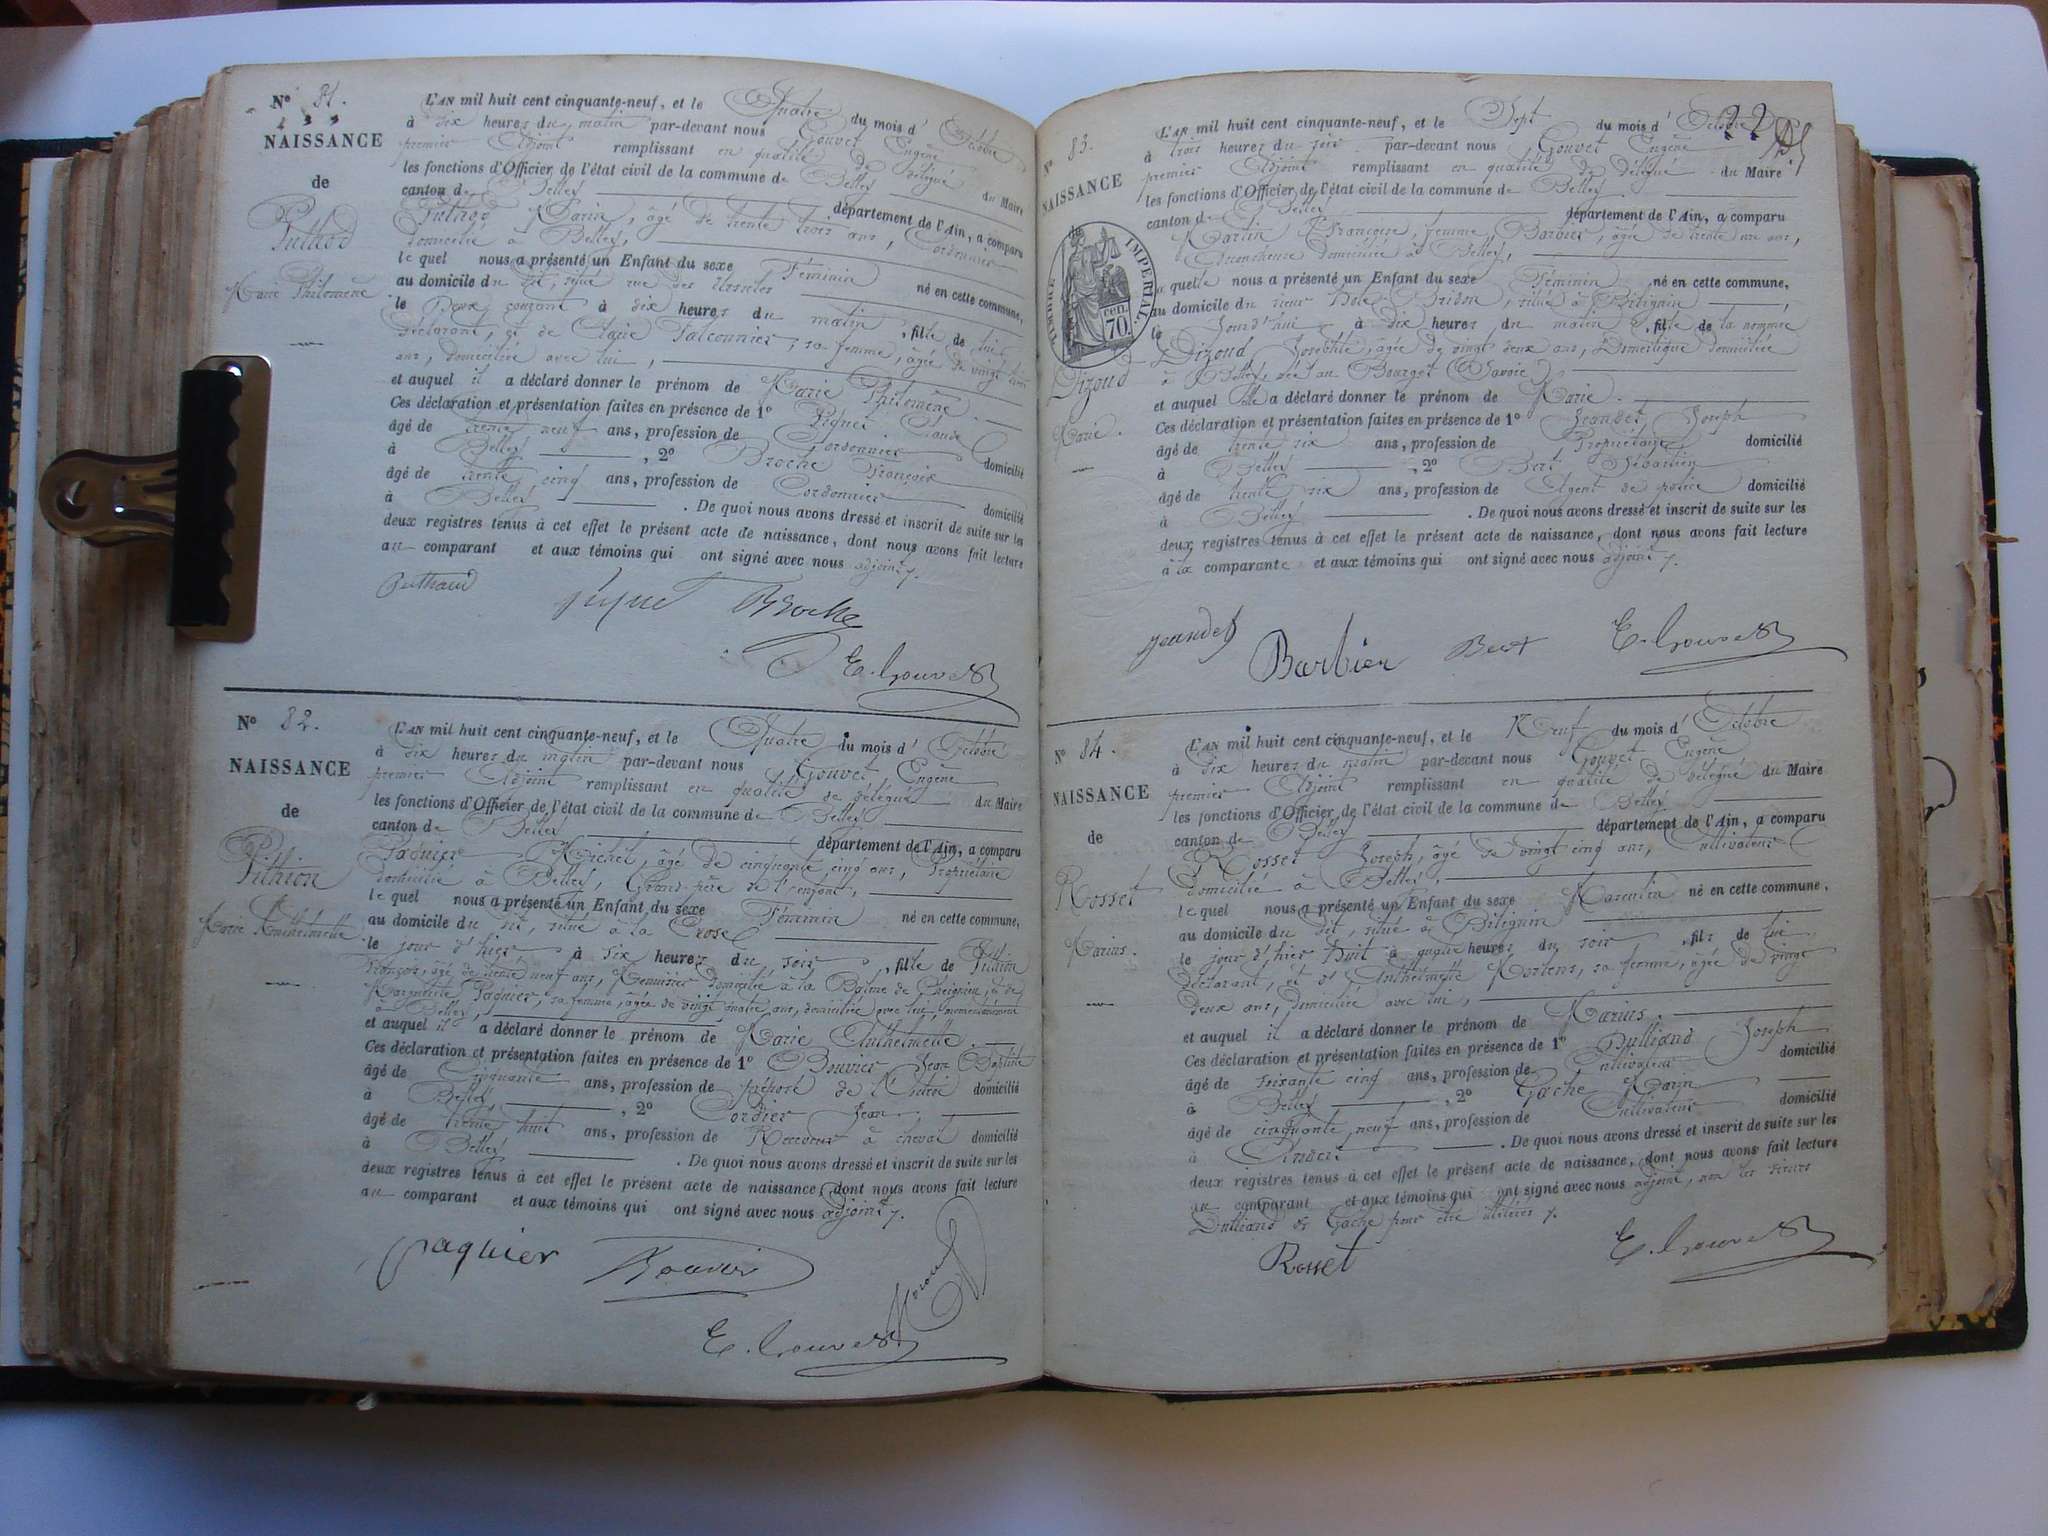 N° 81.
NAISSANCE
de
Puthod
Marie Philomène
L'AN mil huit cent cinquante-neuf, et le Quatre du mois d'Octobre
à dix heures du matin par-devant nous Gouvet Eugène
premier Adjoint remplissant en qualité de délégué du Maire
les fonctions d'Officier de l'état civil de la commune de Belley
canton de Belley département de l'Ain, a comparu
Puthod Marin, âgé de trente trois ans, Cordonnier
domicilié à Belley,
le quel nous a présenté un Enfant du sexe Féminin né en cette commune,
au domicile du dit, situé rue des Ursules
le Deux courant à dix heures du matin, fille de lui
déclarant, et de Claire Falconnier, sa femme, âgée de vingt
ans, domiciliée avec lui,
et auquel il a déclaré donner le prénom de Marie Philomène.
Ces déclaration et présentation faites en présence de 1° Piquet Claude
âgé de trente neuf ans, profession de Cordonnier domicilié
à Belley, 2° Broche François
âgé de trente cinq ans, profession de Cordonnier domicilié
à Belley. De quoi nous avons dressé et inscrit de suite sur les
deux registres tenus à cet effet le présent acte de naissance, dont nous avons fait lecture
au comparant et aux témoins qui ont signé avec nous adjoint.
Puthaud Piquet Broche
E. Gouvet
N° 82.
NAISSANCE
de
Pithion
Marie Anthelmette
L'AN mil huit cent cinquante-neuf, et le Quatre du mois d'Octobre
à dix heures du matin par-devant nous Gouvet Eugène
premier Adjoint remplissant en qualité de délégué du Maire
les fonctions d'Officier de l'état civil de la commune de Belley
canton de Belley département de l'Ain, a comparu
Paquier Michel, âgé de cinquante cinq ans, Propriétaire
domicilié à Belley, Grand père de l'enfant,
le quel nous a présenté un Enfant du sexe Féminin né en cette commune,
au domicile du dit, situé à la
le jour d'hier à six heures du soir, fille de Pithion
François, âgé de trente neuf ans, Menuisier domicilié à la Balme de Pierre, et de
Marguerite Paquier, sa femme, âgée de vingt quatre ans, domiciliée avec lui, momentanément
à Belley,
et auquel il a déclaré donner le prénom de Marie Anthelmette.
Ces déclaration et présentation faites en présence de 1° Bouvier Jean Baptiste
âgé de Cinquante ans, profession de préposé de l'Octroi domicilié
à Belley, 2° Cordier Jean
âgé de trente huit ans, profession de Receveur à cheval domicilié
à Belley. De quoi nous avons dressé et inscrit de suite sur les
deux registres tenus à cet effet le présent acte de naissance, dont nous avons fait lecture
au comparant et aux témoins qui ont signé avec nous adjoint.
Paquier Bouvier
E. Gouvet
22
N° 83.
NAISSANCE
de
TIMBRE IMPERIAL
70. cen
Dizoud
Marie.
L'AN mil huit cent cinquante-neuf, et le Sept du mois d'Octobre
à trois heures du soir par-devant nous Gouvet Eugène
premier Adjoint remplissant en qualité de délégué du Maire
les fonctions d'Officier de l'état civil de la commune de Belley
canton de Belley département de l'Ain, a comparu
Martin Françoise, femme Barbier, âgée de trente un ans,
Accoucheuse domiciliée à Belley,
la quelle nous a présenté un Enfant du sexe Féminin né en cette commune,
au domicile du sieur, situé à Bitignin
le Jourd'hui à dix heures du matin, fille de la nommée
Dizoud, Josephte, âgée de vingt deux ans, Domestique domiciliée
à Belley, née au Bourget (Savoie)
et auquel elle a déclaré donner le prénom de Marie.
Ces déclaration et présentation faites en présence de 1° Jeandet Joseph
âgé de trente six ans, profession de Propriétaire domicilié
à Belley, 2° Bert Sébastien
âgé de trente six ans, profession de Agent de police domicilié
à Belley. De quoi nous avons dressé et inscrit de suite sur les
deux registres tenus à cet effet le présent acte de naissance, dont nous avons fait lecture
à la comparante et aux témoins qui ont signé avec nous adjoint.
Jeandet Barbier Bert E. Gouvet
N° 84.
NAISSANCE
de
Rosset
Marius.
L'AN mil huit cent cinquante-neuf, et le Neuf du mois d'Octobre
à dix heures du matin par-devant nous Gouvet Eugène
premier Adjoint remplissant en qualité de délégué du Maire
les fonctions d'Officier de l'état civil de la commune de Belley
canton de Belley département de l'Ain, a comparu
Rosset Joseph, âgé de vingt cinq ans, Cultivateur
domicilié à Belley,
le quel nous a présenté un Enfant du sexe Masculin né en cette commune,
au domicile du dit, situé à Bitignin
le jour d'hier Huit à quatre heures du soir, fils de lui
déclarant, et d'Anthelmette Mortens, sa femme, âgée de vingt
deux ans, domiciliée avec lui,
et auquel il a déclaré donner le prénom de Marius.
Ces déclaration et présentation faites en présence de 1° Dulliand Joseph
âgé de soixante cinq ans, profession de Cultivateur domicilié
à Belley, 2° Gache Marin
âgé de cinquante neuf ans, profession de Cultivateur domicilié
à Andert. De quoi nous avons dressé et inscrit de suite sur les
deux registres tenus à cet effet le présent acte de naissance, dont nous avons fait lecture
au comparant et aux témoins qui ont signé avec nous adjoint, non les sieurs
Dulliand et Gache pour être illitérés.
Rosset E. Gouvet